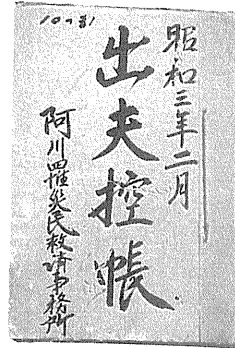 10-31
昭和三年二月
出夫控帳
阿川罹災民救済事務所